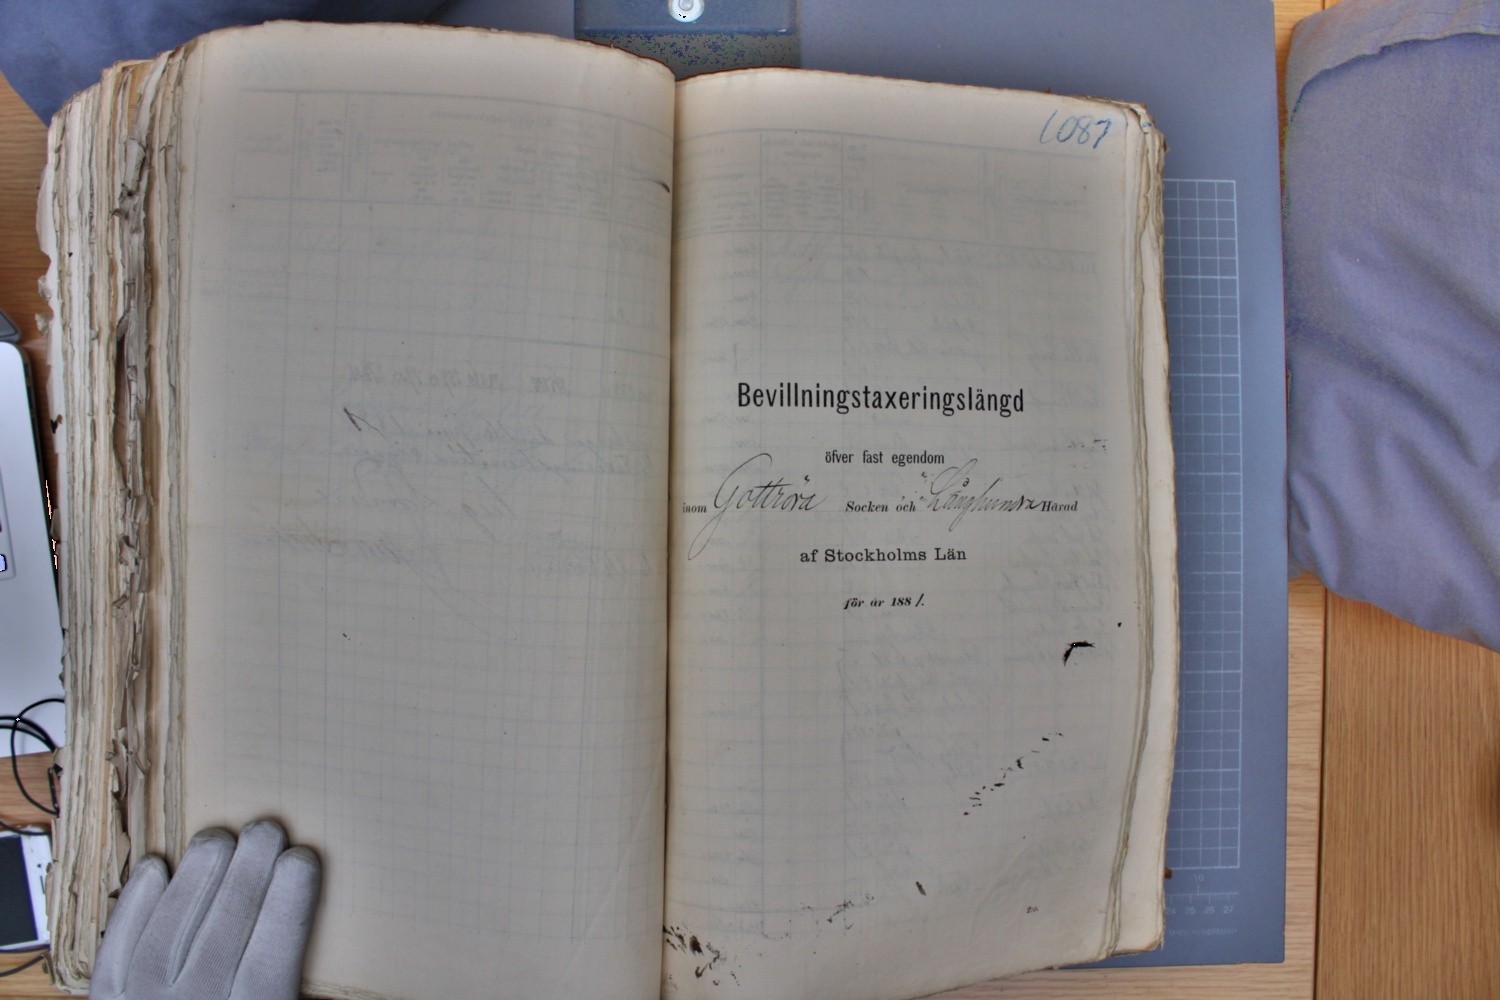 1087
Bevillningstaxeringslängd
öfver fast egendom
inom Gottröra Socken och Långhundra Härad
af Stockholms Län
för år 1881.